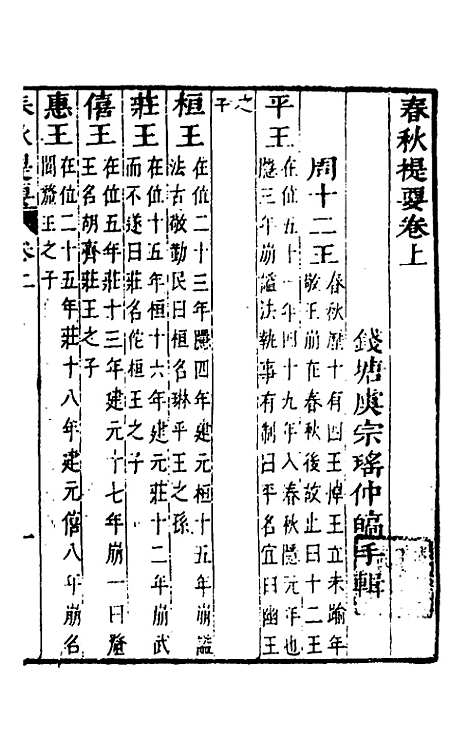 春秋提要卷上
錢塘虞宗瑤仲皜手輯
周十二王
春秋歷十有四王悼王立未踰年
敬王崩在春秋後故止曰十二王
平王
在位五十一年四十九年入春秋隱元年也
隱三年崩謚法執事有制曰平名宜臼幽王
之
子
桓王
在位二十三年隱四年建元桓十五年崩謚
法古敬勤民曰桓名琳平王之孫
莊王
在位十五年桓十六年建元莊十二年崩武
而不遂曰莊名佗桓王之子
僖王
在位五年莊十三年建元十七年崩一曰釐
王名胡齊莊王之子
惠王
在位二十五年莊十八年建元僖八年崩名
閬僖王之子
春秋提要
卷上
一